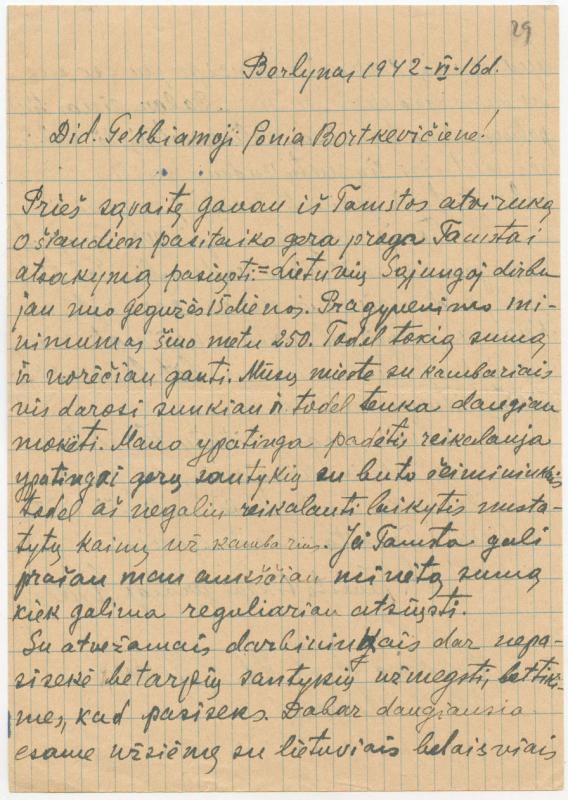 29
Berlynas, 1942-VI-16 d.
Did. Gerbiamoji Ponia Bortkevičiene!
Prieš sąvaitę gavau iš Tamstos atviruką
o šiandien pasitaiko gera proga Tamstai
atsakymą pasiųsti.= Lietuvių Sąjungoj dirbu
jau nuo gegužės 15 dienos. Pragyvenimo mi-
nimumas šiuo metu 250. Todel tokią sumą
ir norėčiau gauti. Mūsų mieste su kambariais
vis darosi sunkiau ir todel tenka daugiau
mokėti. Mano ypatinga padėtis reikalauja
ypatingai gerų santykių su buto šeimininkais
todel aš negaliu reikalauti laikytis nusta-
tytų kainų už kambarius. Jei Tamsta gali
prašau man aukščiau minėtą sumą
kiek galima reguliariau atsiųsti.
Su atvežamais darbininkais dar nepa-
sisekė betarpių santykių užmegsti, bet tiki-
mės, kad pasiseks. Dabar daugiausia
esame užsiėmę su lietuviais belaisviais